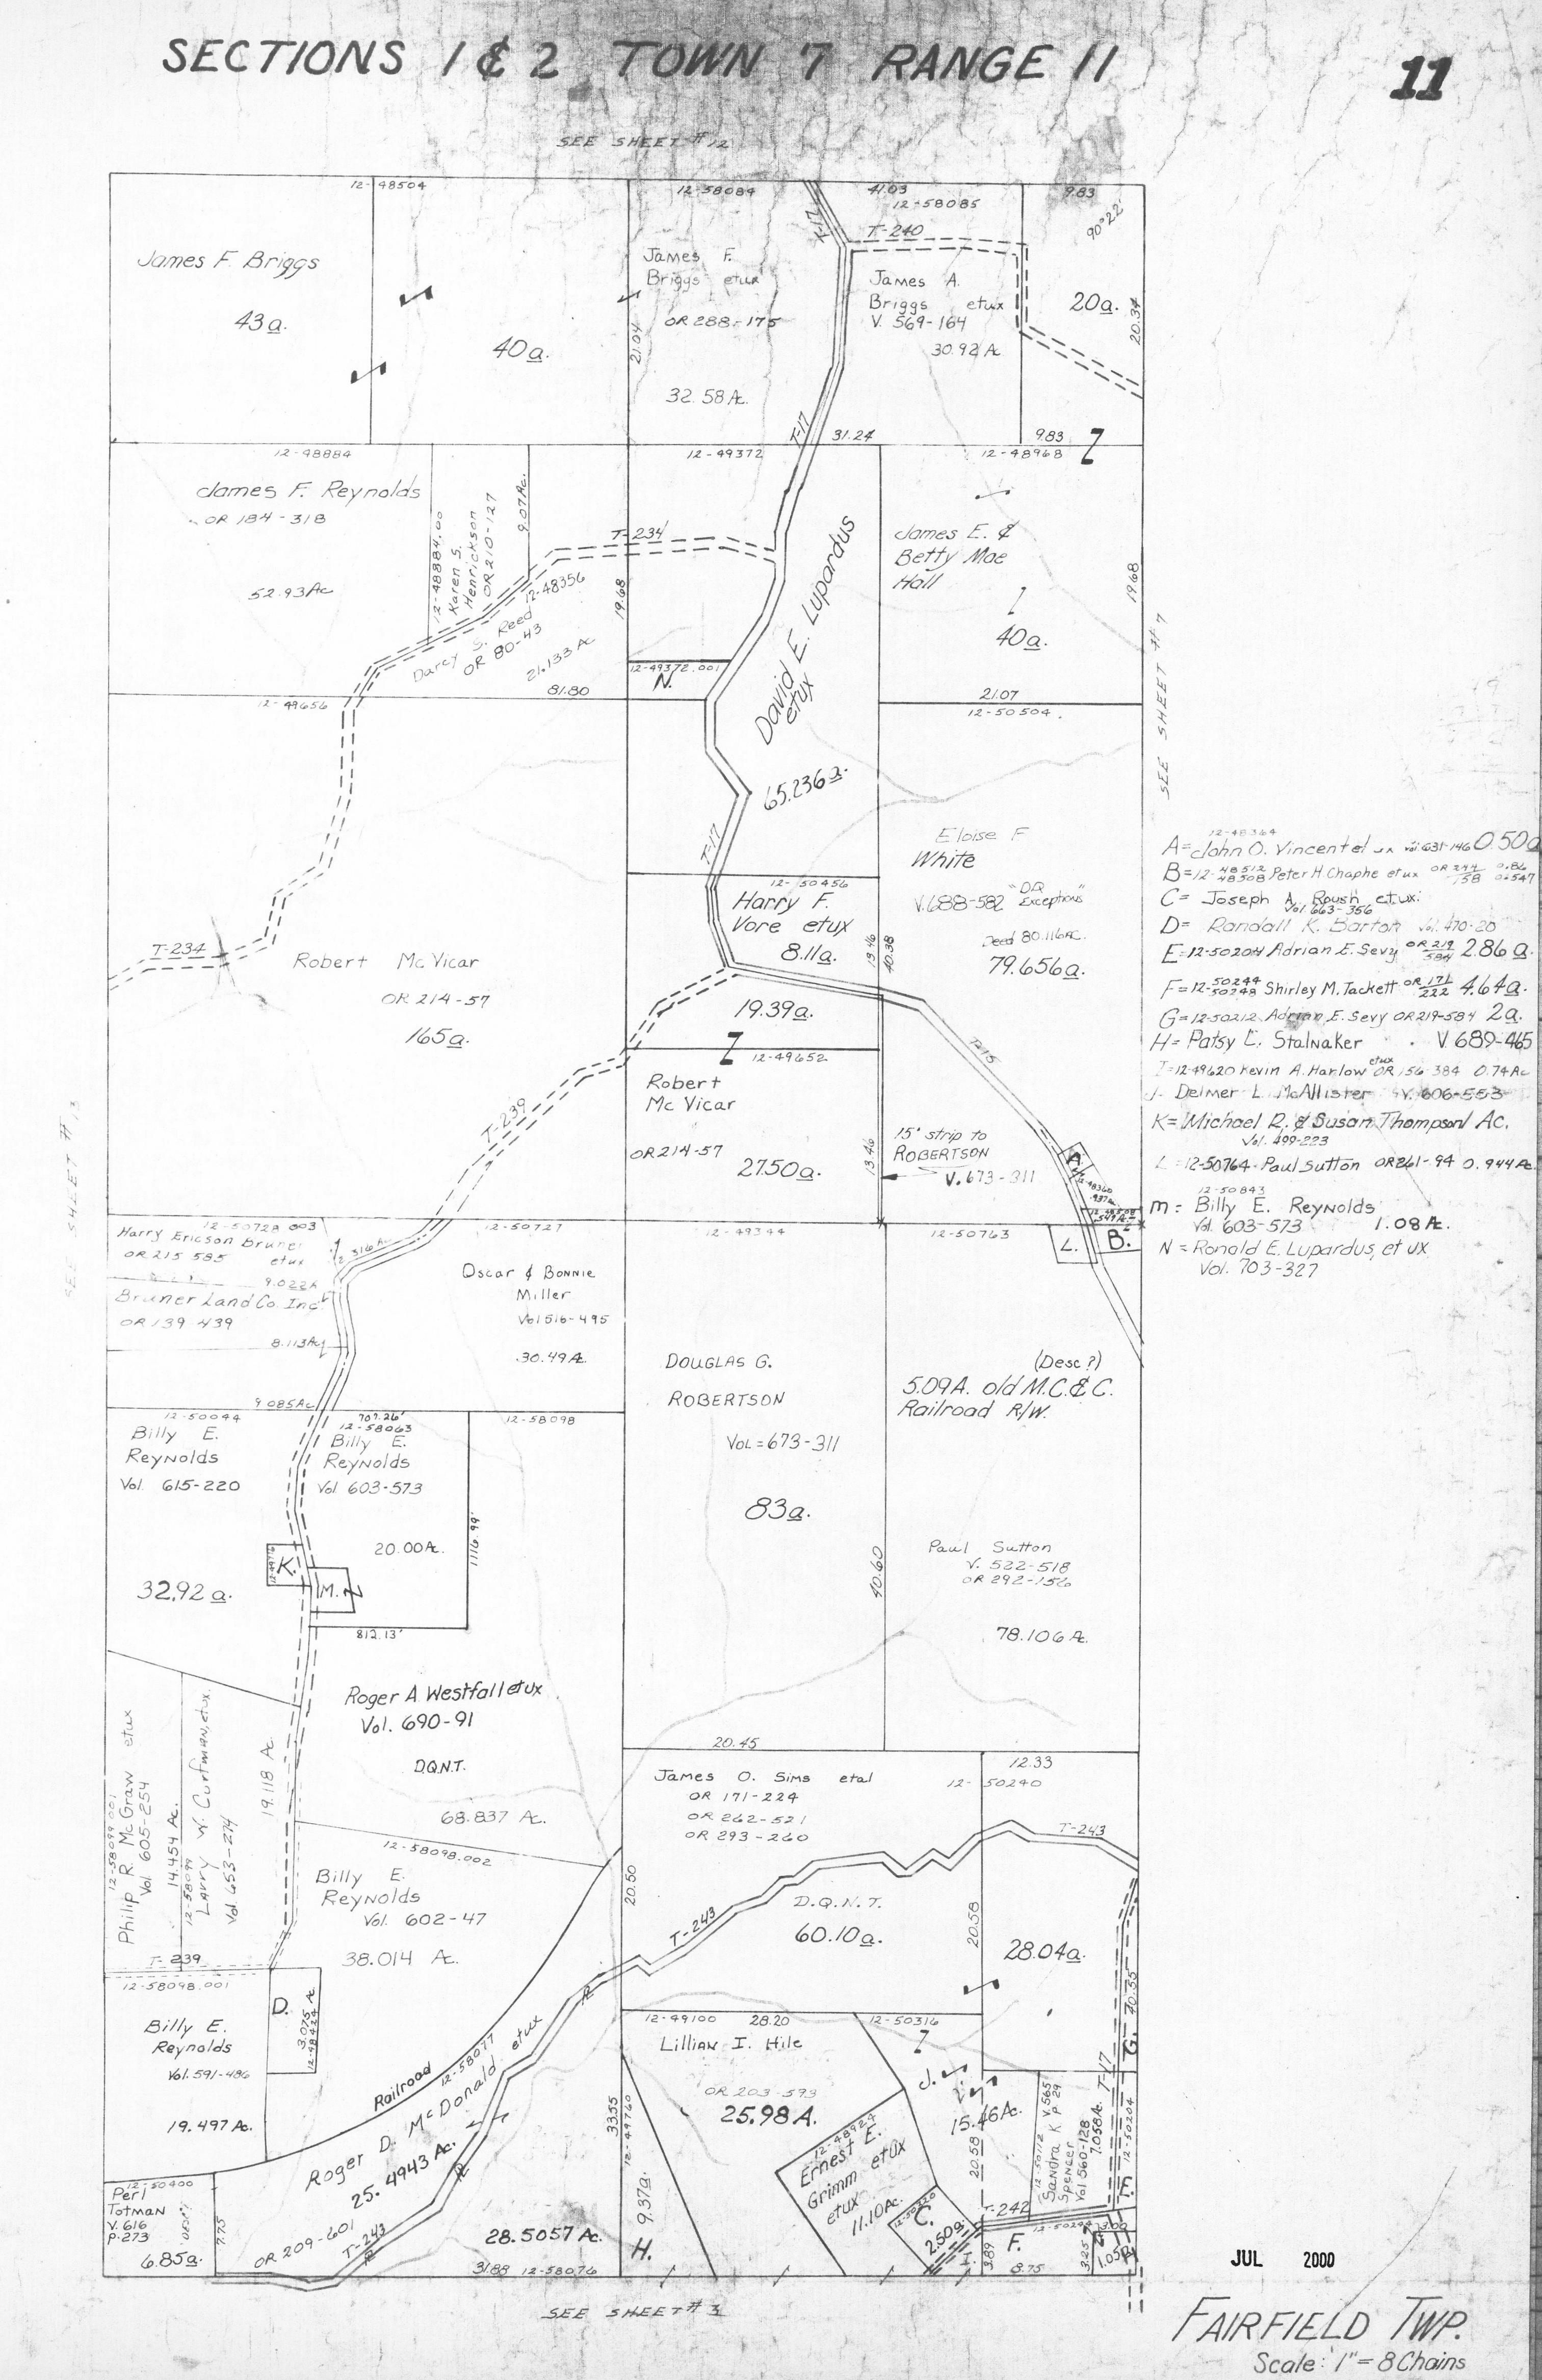 SECTIONS 1 & 2 TOWN 7 RANGE 11
11
SEE SHEET #12
12-48504
12-58084
41.03
12-58085
9.83
90°22'
T-17
T-240
James F. Briggs
43a.
40a.
James F.
Briggs etux
OR 288-175
21.04
32.58 Ac.
James A.
Briggs etux
V. 569-164
30.92 Ac
20a.
20.34
T-17
31.24
9.83
12-48884
12-49372
12-48968
James F. Reynolds
OR 184-318
52.93 Ac
12-48884.00
Karen S.
Henrickson
OR 210-127
9.07 Ac.
T-234
12-48356
Darcy S. Reed
OR 80-43
21.133 Ac
19.68
81.80
12-49372.001
N.
David E. Lupardus
etux
65.236a.
James E. &
Betty Mae
Hall
40a.
19.68
21.07
12-50504
SEE SHEET #7
12-49656
T-17
Eloise F
White
V.688-582 "D.Q. Exceptions"
Deed 80.116 Ac.
79.656a.
12-50456
Harry F.
Vore etux
8.11a.
13.46
40.38
T-234
Robert McVicar
OR 214-57
165a.
19.39a.
12-49652
T-239
Robert
McVicar
OR 214-57
27.50a.
13.46
15' strip to
ROBERTSON
V. 673-311
T-15
A.
12-48360
B.
L.
SEE SHEET #13
12-48364
A= John O. Vincent et ux Vol. 631-146 0.50a
B=12-48512 48508 Peter H Chaphe etux OR 244 158 0.86 0.547
C= Joseph A. Roush etux
Vol 663-356
D= Randall K. Barton Vol. 470-20
E=12-50204 Adrian E. Sevy OR 219 584 2.86a.
F=12-50244 50248 Shirley M. Tackett OR 171 222 4.64a.
G=12-50212 Adrian E. Sevy OR219-584 2a.
H= Patsy L. Stalnaker V 689-465
I=12-49620 Kevin A. Harlow etux OR 156-384 0.74 Ac
J- Delmer L. McAllister V. 606-553
K= Michael R. & Susan Thompson Ac.
Vol. 499-223
L=12-50764 Paul Sutton OR261-94 0.944 Ac
12-50843
M= Billy E. Reynolds
Vol. 603-573 1.08 Ac.
N = Ronald E. Lupardus, et ux
Vol. 703-327
12-50728.003
Harry Ericson Bruner
OR 215 585 etux
9.022A
Bruner Land Co. Inc
OR 139 439
8.113Ac
9.085Ac
12-50727
Oscar & Bonnie
Miller
Vol 516-495
30.49 Ac
12-49344
DOUGLAS G.
ROBERTSON
VOL=673-311
83a.
40.60
12-50763
(Desc?)
5.09A. old M.C.&C.
Railroad R/W.
Paul Sutton
V. 522-518
OR 292-156
78.106 Ac.
12-50044
Billy E.
Reynolds
Vol. 615-220
32.92a.
707.26'
12-58063
Billy E.
Reynolds
Vol 603-573
20.00 Ac.
1116.99'
812.13'
12-58098
K.
M.
Roger A Westfall etux
Vol. 690-91
D.Q.N.T.
68.837 Ac.
12-58099.001
Philip R. McGraw etux
Vol. 605-254
14.454 Ac.
12-58099
Larry W. Curfman, etux.
Vol. 653-274
19.118 Ac.
12-58098.002
Billy E.
Reynolds
Vol. 602-47
38.014 Ac.
20.45
James O. Sims etal
OR 171-224
OR 262-521
OR 293-260
12.33
12-50240
T-243
20.50
T-243
D.Q.N.T.
60.10a.
20.58
28.04a.
40.55
G.
T-239
12-58098.001
Billy E.
Reynolds
Vol. 591-486
19.497 Ac.
D.
3.075 Ac
12-48424
Railroad
12-58077
Roger D. McDonald etux
25.4943 Ac.
OR 209-601
T-243
28.5057 Ac.
31.88 12-58076
12-50400
Perl
Totman
V. 616
P-273
6.85a.
7.75
33.55
12-49760
9.37a.
H.
12-49100 28.20
Lillian I. Hile
OR 203-593
25.98 A.
12-50316
J.
15.46 Ac.
20.58
12-48924
Ernest E.
Grimm etux
etux
11.10 Ac.
12-50320
C.
2.50a.
I.
12-50112
Sandra K
Spencer
V. 565
P 29
Vol 560-128
7.058 A.
T-17
12-50204
E.
T-242
F.
3.89
8.75
3.25
3.00
SEE SHEET #3
JUL 2000
FAIRFIELD TWP.
Scale: 1" = 8 Chains